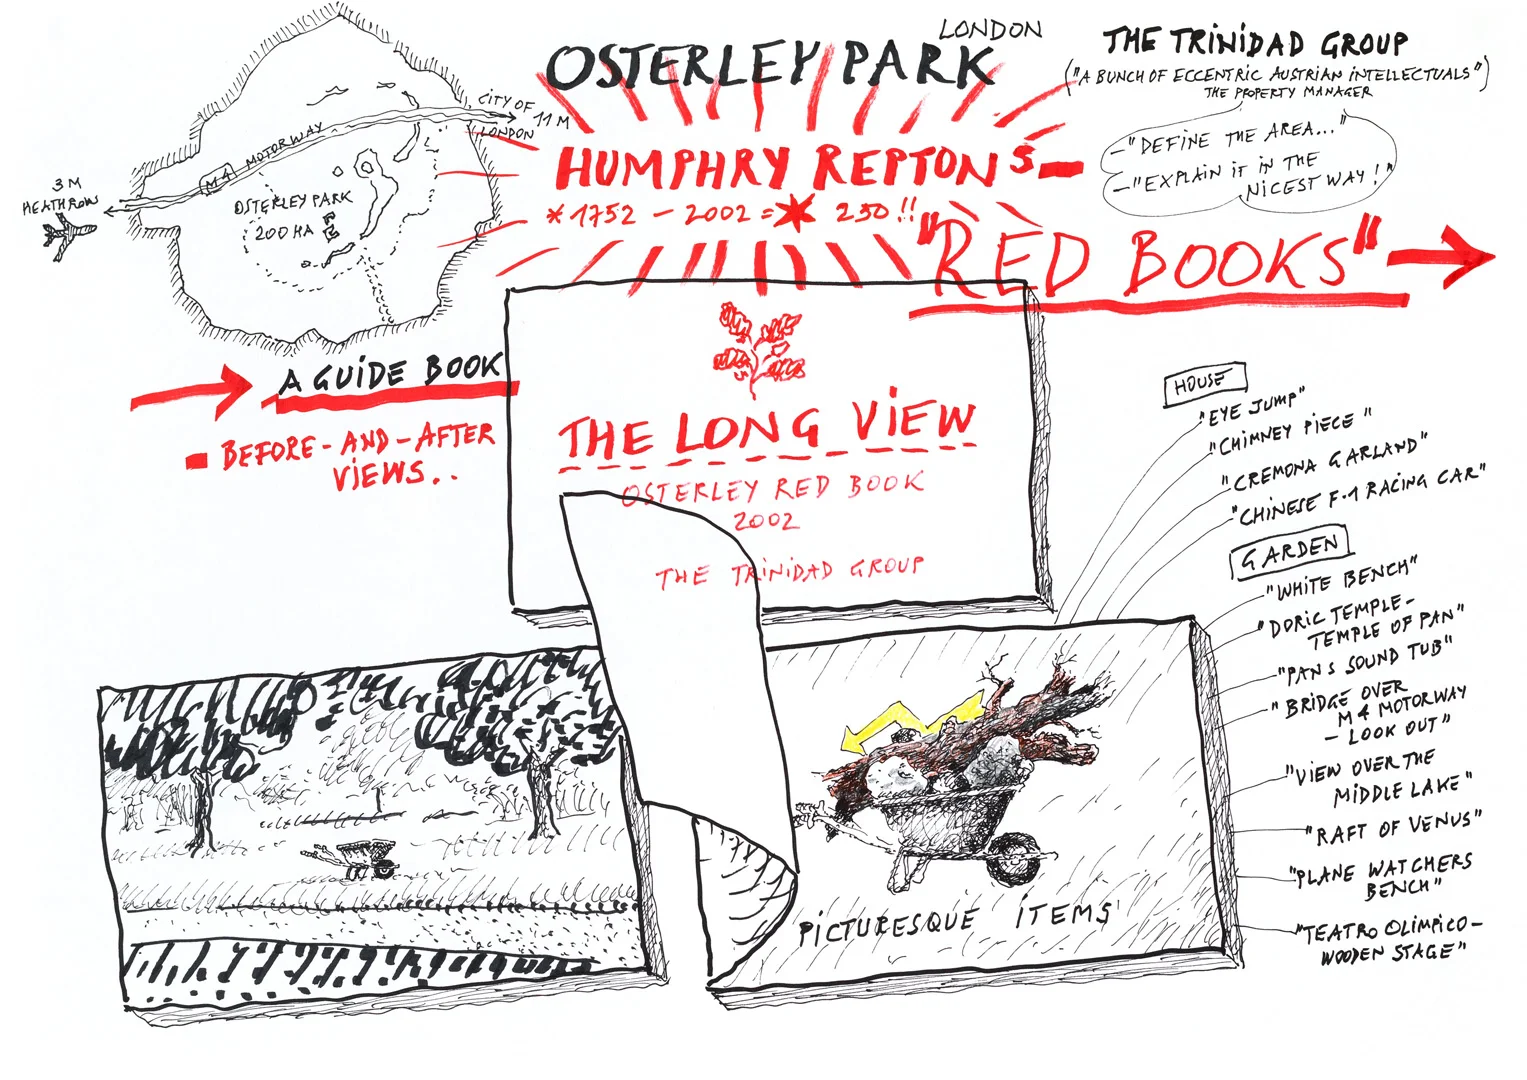 OSTERLEY PARK
LONDON
THE TRINIDAD GROUP
("A BUNCH OF ECCENTRIC AUSTRIAN INTELLECTUALS")
THE PROPERTY MANAGER
-"DEFINE THE AREA..."
-"EXPLAIN IT IN THE
NICEST WAY!"
CITY OF
LONDON
11 M
M4 MOTORWAY
3 M
HEATHROW
OSTERLEY PARK
200 HA
HUMPHRY REPTONS-
* 1752 - 2002 = * 250!!
"RED BOOKS"
A GUIDE BOOK
BEFORE-AND-AFTER
VIEWS..
THE LONG VIEW
OSTERLEY RED BOOK
2002
THE TRINIDAD GROUP
HOUSE
"EYE JUMP"
"CHIMNEY PIECE"
"CREMONA GARLAND"
"CHINESE F-1 RACING CAR"
GARDEN
"WHITE BENCH"
"DORIC TEMPLE-
TEMPLE OF PAN"
"PANS SOUND TUB"
"BRIDGE OVER
M4 MOTORWAY
- LOOK OUT"
"VIEW OVER THE
MIDDLE LAKE"
"RAFT OF VENUS"
"PLANE WATCHERS
BENCH"
"TEATRO OLIMPICO-
WOODEN STAGE"
PICTURESQUE ITEMS